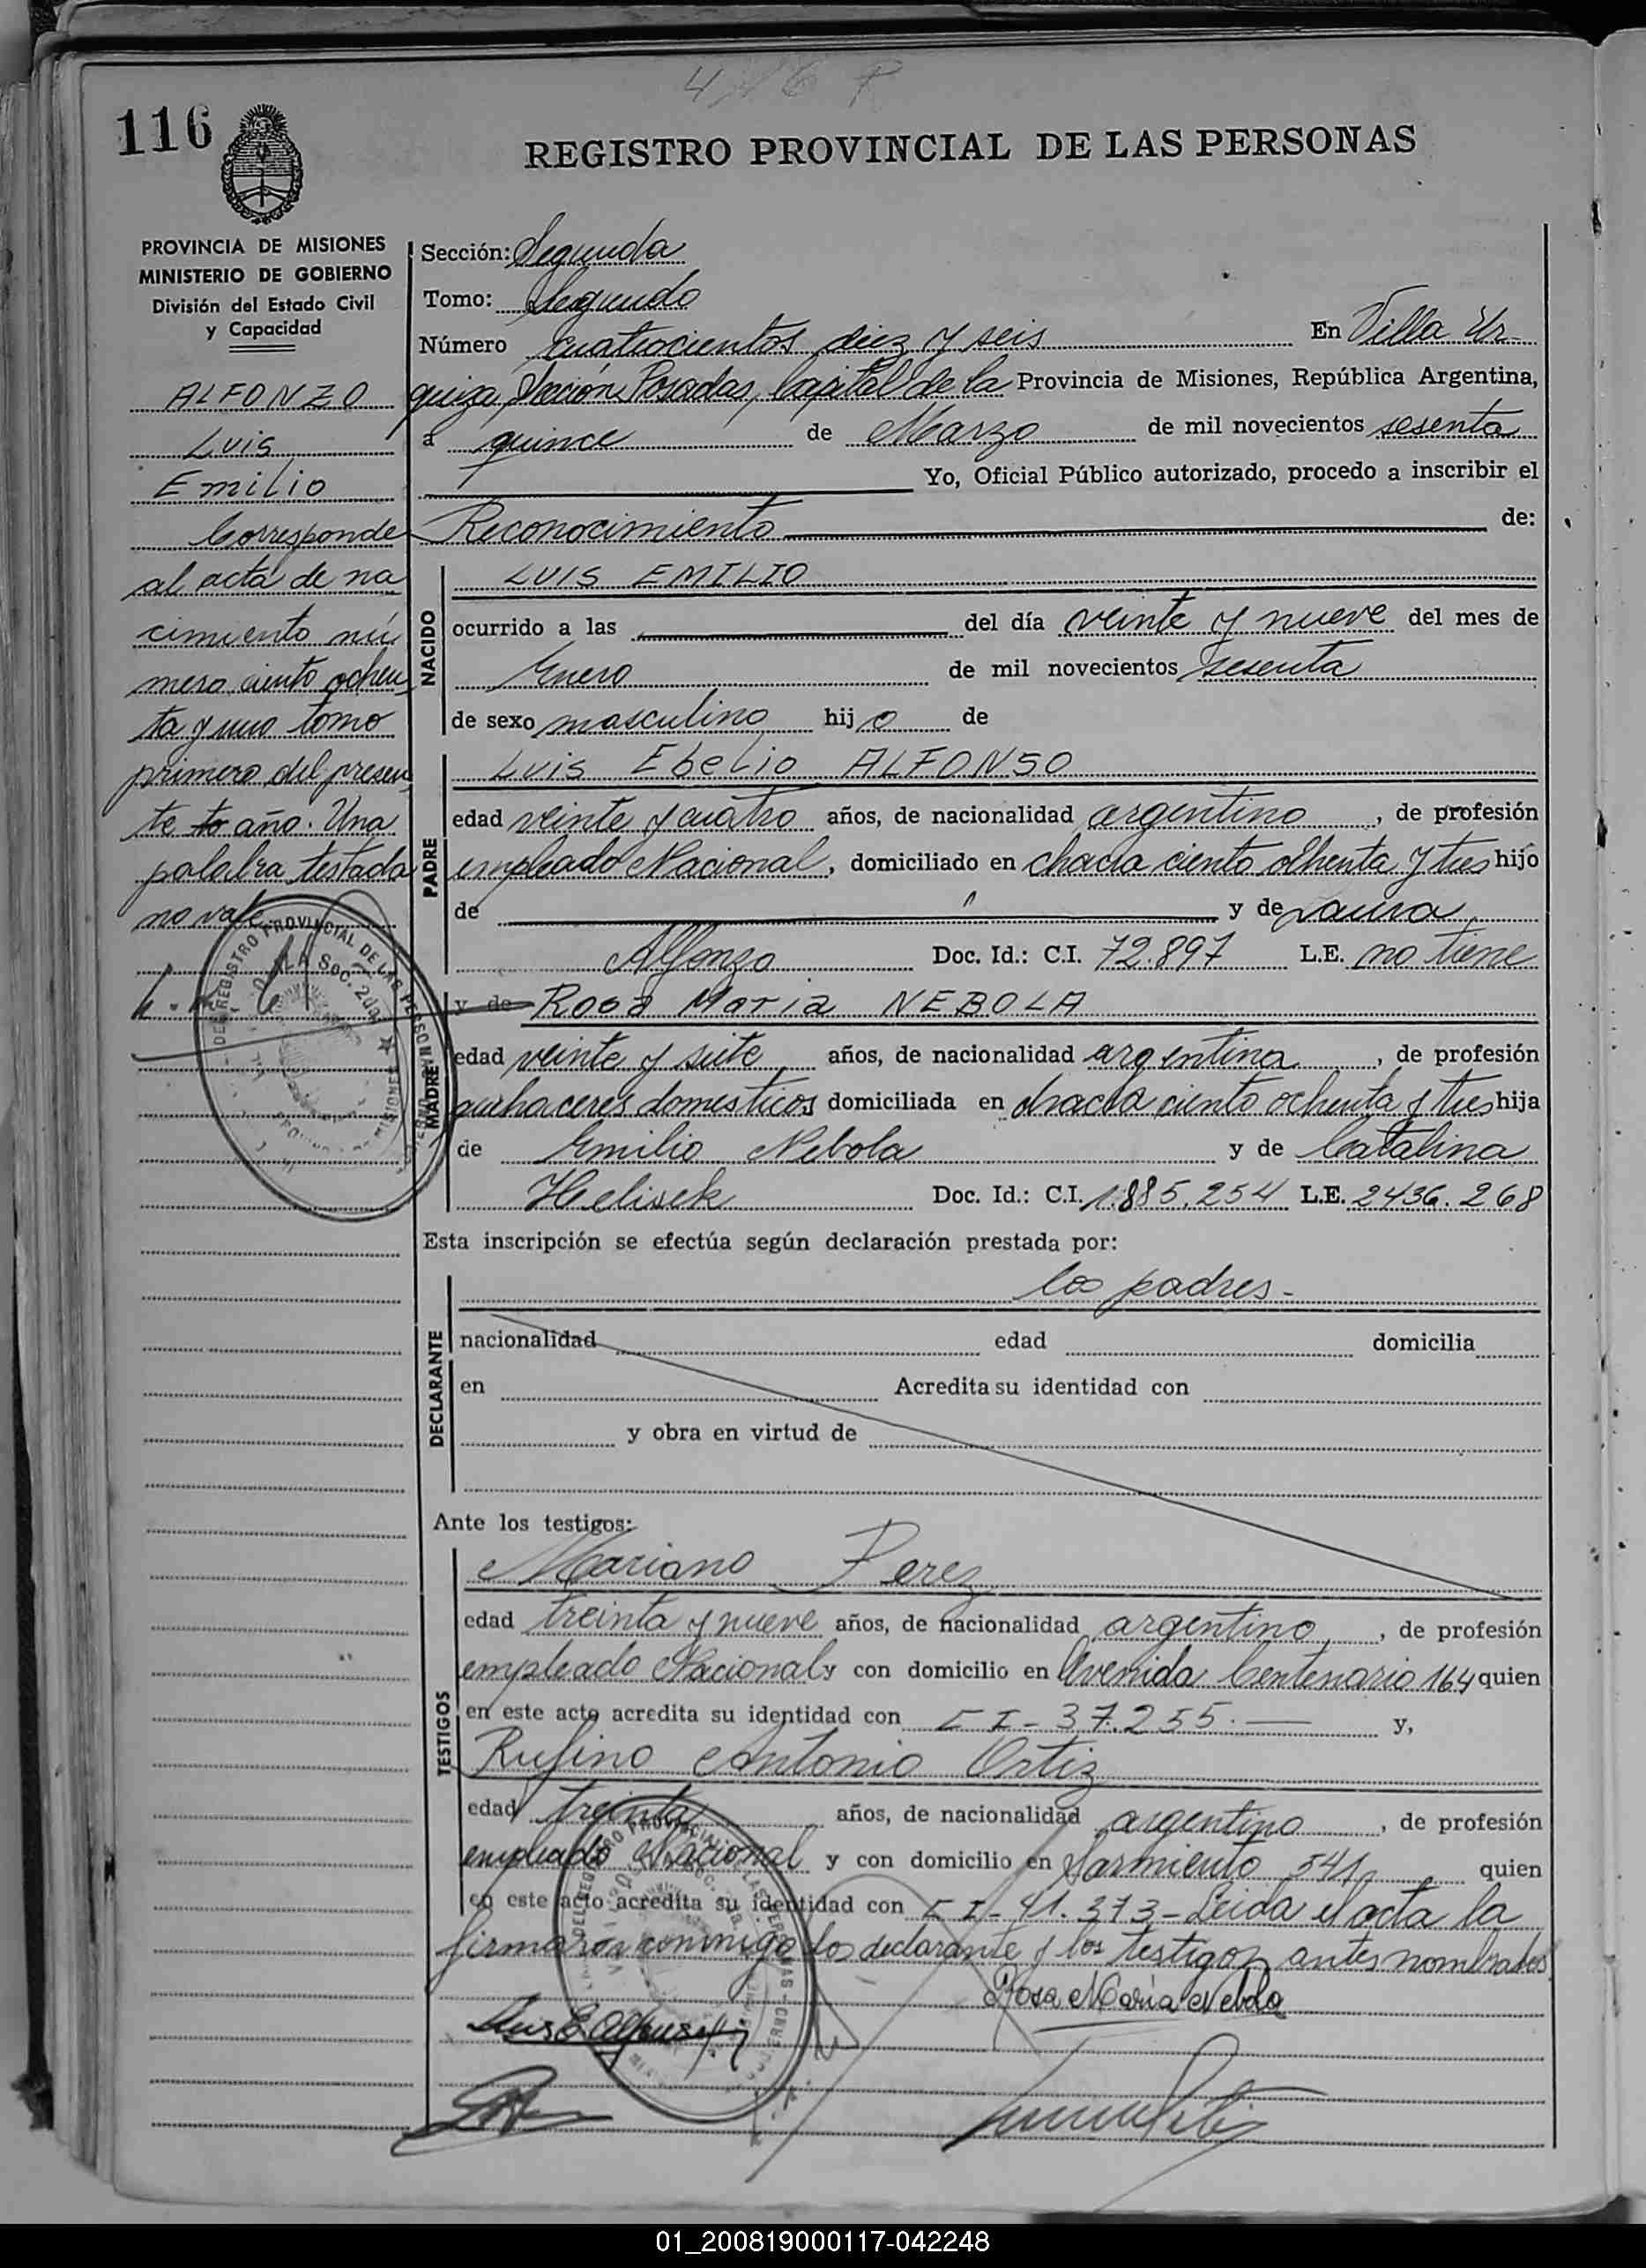 116
REGISTRO PROVINCIAL DE LAS PERSONAS
PROVINCIA DE MISIONES
MINISTERIO DE GOBIERNO
División del Estado Civil
y Capacidad
ALFONZO
Luis
Emilio
Corresponde
al acta de na
cimiento nú
mero ciento ochen
ta y uno tomo
primero del presen
te to año. Una
palabra testada
no vale
Sección: Segunda
Tomo: Segundo
Número cuatrocientos diez y seis En Villa Ur-
quiza, Sección Posadas, Capital de la Provincia de Misiones, República Argentina,
a quince de Marzo de mil novecientos sesenta
Yo, Oficial Público autorizado, procedo a inscribir el
Reconocimiento de:
NACIDO
LUIS EMILIO
ocurrido a las del día veinte y nueve del mes de
Enero de mil novecientos sesenta
de sexo masculino hijo de
PADRE
Luis Ebelio ALFONSO
edad veinte y cuatro años, de nacionalidad argentino, de profesión
empleado Nacional, domiciliado en chacra ciento ochenta y tres hijo
de y de Laura
Alfonzo Doc. Id.: C.I. 72.897 L.E. no tiene
MADRE
y de Rosa Maria NEBOLA
edad veinte y siete años, de nacionalidad argentina, de profesión
quehaceres domesticos domiciliada en chacra ciento ochenta y tres hija
de Emilio Nebola y de Catalina
Helisek Doc. Id.: C.I. 1.885.254 L.E. 2436.268
Esta inscripción se efectúa según declaración prestada por:
DECLARANTE
los padres-
nacionalidad edad domicilia
en Acredita su identidad con
y obra en virtud de
Ante los testigos:
TESTIGOS
Mariano Perez
edad treinta y nueve años, de nacionalidad argentino, de profesión
empleado Nacional y con domicilio en Avenida Centenario 164 quien
en este acto acredita su identidad con CI- 37.255.- y,
Rufino Antonio Ortiz
edad treinta años, de nacionalidad argentino, de profesión
empleado Nacional y con domicilio en Sarmiento 541 quien
en este acto acredita su identidad con CI- 41.373- Leida el acta la
firmaron conmigo los declarante y los testigos antes nombrados
Rosa Maria Nebola
01_200819000117-042248